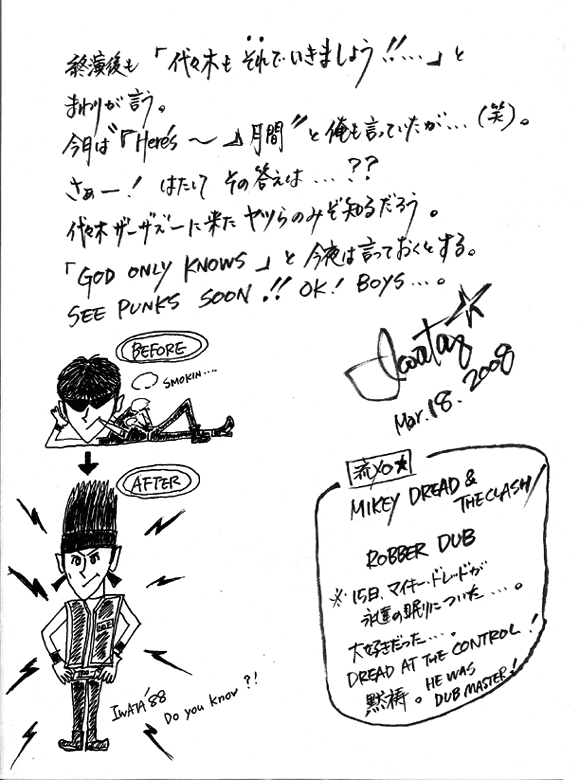 終演後も「代々木もそれでいきましょう!!…」と
まわりが言う。
今月は"『Here's 〜』月間"と俺も言っていたが…(笑)。
さぁー! はたして その答えは…??
代々木ザーザズーに来た ヤツらのみぞ知るだろう。
「GOD ONLY KNOWS」と今夜は言っておくとする。
SEE PUNKS SOON!! OK! BOYS…。
Iwata
Mar.18.2008
BEFORE
SMOKIN....
AFTER
IWATA '88
Do you know?!
流YO★
MIKEY DREAD &
THE CLASH/
ROBBER DUB
※15日、マイキー・ドレッドが
永遠の眠りについた…。
大好きだった…。
DREAD AT THE CONTROL!
黙祷。HE WAS
DUB MASTER!